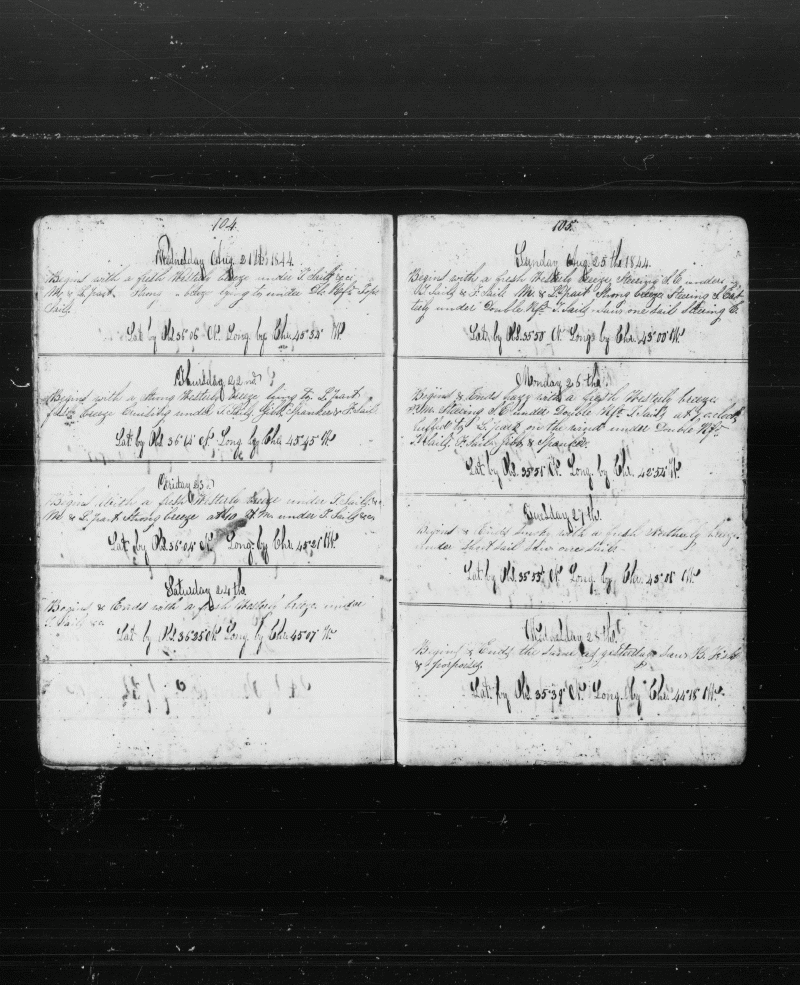 104.
Wednesday Aug. 21st 1844.
Begins with a fresh Westerly breeze under T. Sails &c.
M. & L. part Strong breeze lying to under Dble Reft. Tops
Sails.
Lat. by Obs. N. Long. by Chr. 45.34 W.
Thursday 22nd
Begins with a Strong Westerly breeze lying to. L. part
fresh breeze Cruising under T. Sails, Gibb Spanker & F. Sail
Lat. by Obs. N. Long. by Chr. 45.45 W.
Friday 23.
Begins with a fresh Westerly breeze under T. Sails &c.
M. & L. part Strong breeze at M. under T. Sails &c.
Lat. by Obs. 36.04 N. Long. by Chr. 45.21 W.
Saturday 24th
Begins & Ends with a fresh Westerly breeze under
T. Sails &c.
Lat. by Obs. 35.35 N. Long. by Chr. 45.07 W.
105.
Sunday Aug. 25th 1844.
Begins with a fresh Westerly breeze Steering S.E. under
T. Sails & F. Sail. M. & L. part Strong breeze Steering S. Eas
terly under Double Reft. T. Sails. Saw one sail Steering E.
Lat. by Obs. 35.50 N. Long. by Chr. 45.00 W.
Monday 26th
Begins & Ends with a fresh Westerly breeze
Steering S.E. under Double Reft. T. Sails at
L. part on the wind under Double Reft.
T. Sails, F. Sail, Jibb & Spanker.
Lat. by Obs. 35.31 N. Long. by Chr. W.
Tuesday 27th
Begins & Ends with a fresh Westerly breeze
under Short sail Saw one sail.
Lat. by Obs. 35.55 N. Long. by Chr. W.
Wednesday 28th
Begins & Ends the same as yesterday Saw B. Fish
& Porpoises.
Lat. by Obs. N. Long. by Chr. 44.18 W.